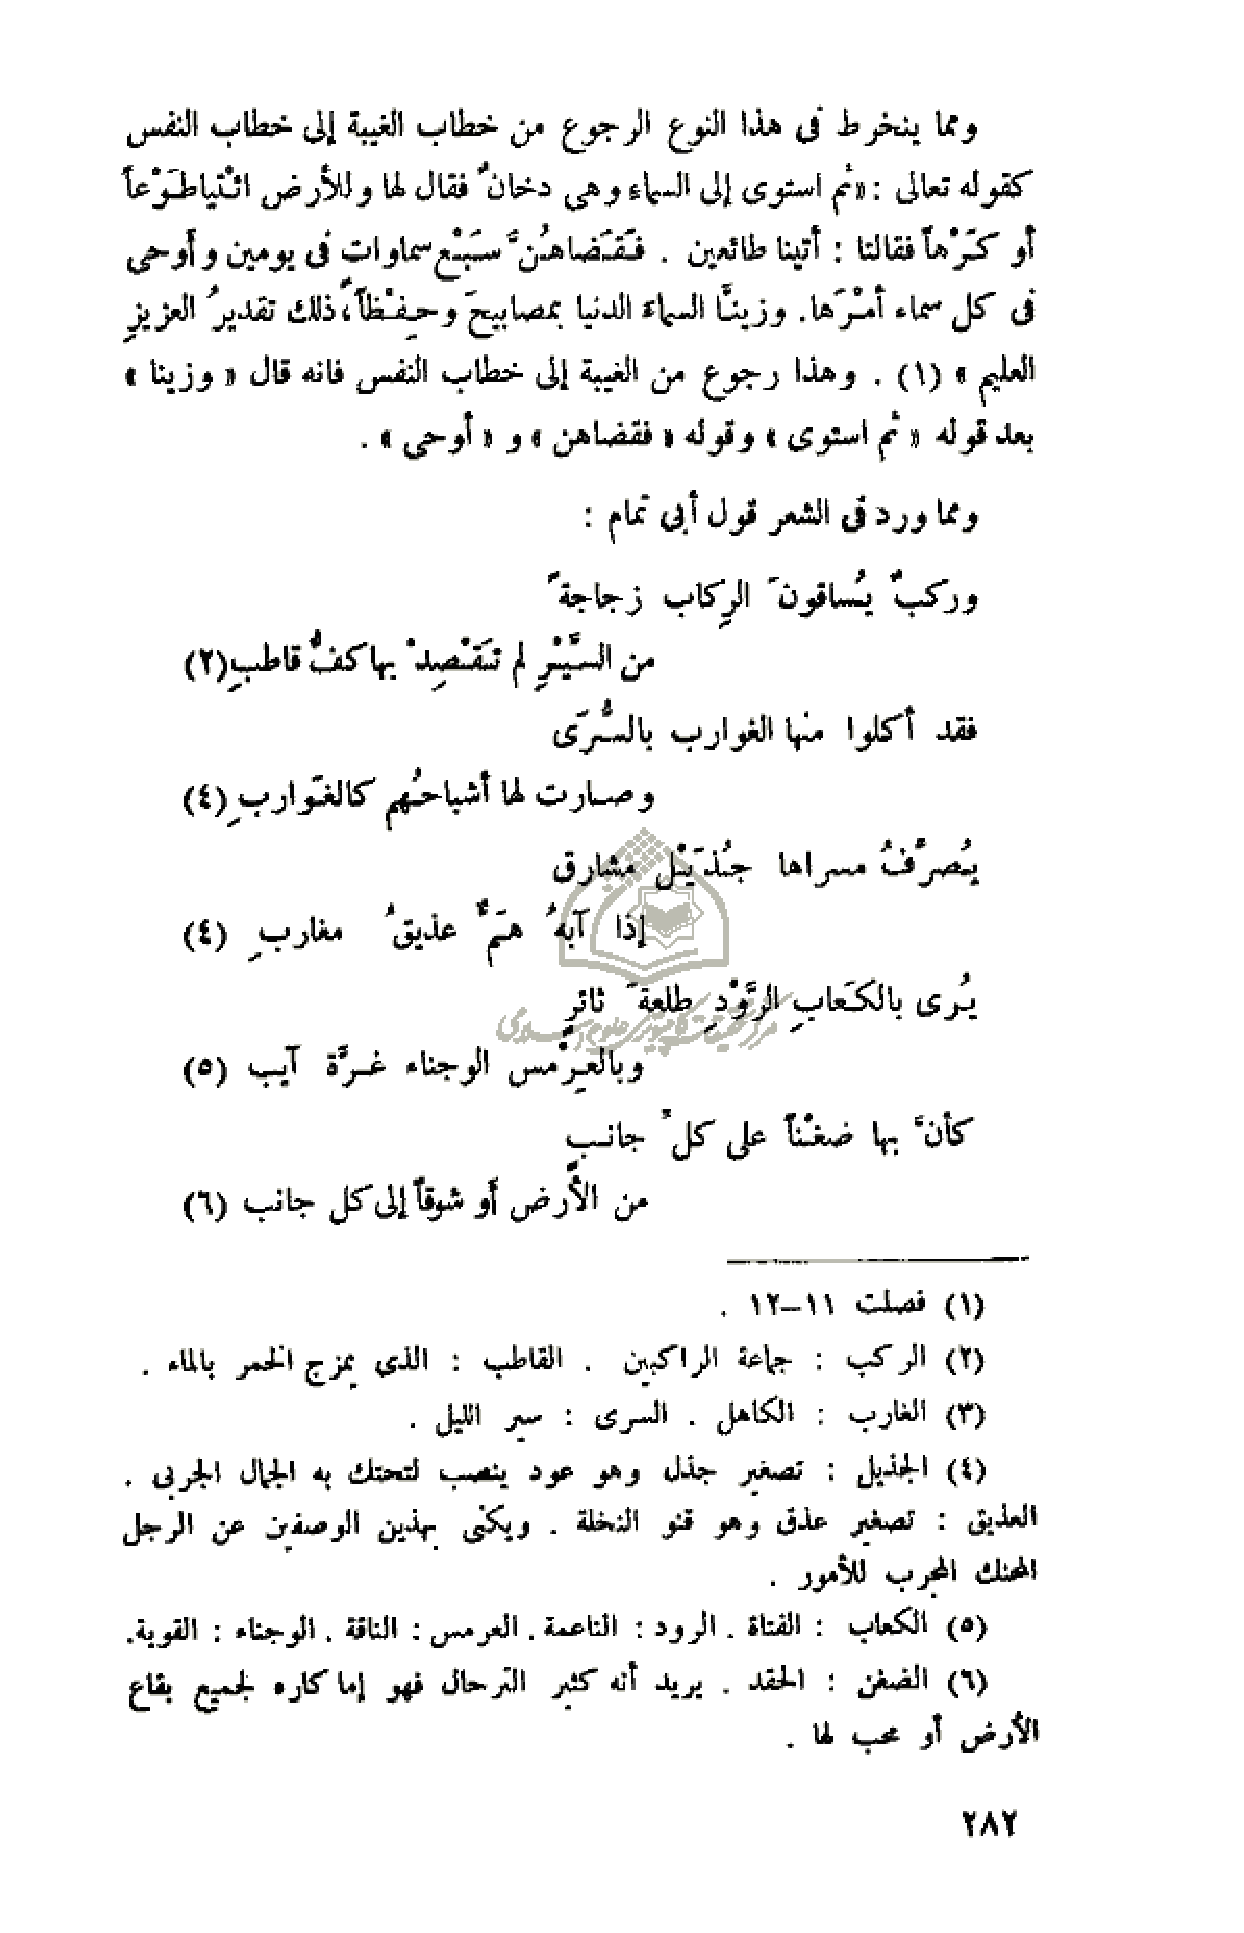 ومما ينخرط فى هذا النوع الرجوع من خطاب الغيبة إلى خطاب النفس
كقوله تعالى : «ثم استوى إلى السماء وهى دخانٌ فقال لها وللأرض ائْتياطَوْعاً
أو كَرْهاً فقالتا : أتينا طائعين . فَقَضاهُنَّ سَبْع سماوات فى يومين وأوحى
فى كل سماء أمْرَها. وزينَّا السماءَ الدنيا بمصابيحَ وحِفْظاً، ذلك تقديرُ العزيزِ
العليم » (١) . وهذا رجوع من الغيبة إلى خطاب النفس فانه قال « وزينا »
بعد قوله « ثم استوى » وقوله « فقضاهن » و « أوحى » .
ومما ورد فى الشعر قول أبى تمام :
وركبٌ يُساقونَ الرِكاب زجاجةً
من السَّيْرِ لم تَقْصِدْ بها كفُّ قاطبِ(٢)
فقد أكلوا منها الغوارب بالسُّرَى
وصارت لها أشباحُهم كالغَوارب ِ(٤)
يُصرِّفُ مسراها جُذَيْل مشارق
إذا آبهُ هَمٌّ عذيقُ مغاربِ (٤)
يُرى بالكَعابِ الرَّوْدِ طلعةَ ثائرٍ
وبالعِرْمس الوجناء غرَّة آيب (٥)
كأنَّ بها ضغْناً على كلِّ جانبٍ
من الأرض أو شوقاً إلى كل جانب (٦)
(١) فصلت ١١–١٢ .
(٢) الركب : جماعة الراكبين . القاطب : الذى يمزج الخمر بالماء .
(٣) الغارب : الكاهل . السرى : سير الليل .
(٤) الجذيل : تصغير جذل وهو عود ينصب لتحتك به الجمال الجربى .
العذيق : تصغير عذق وهو قنو النخلة . ويكنى بهذين الوصفين عن الرجل
المحنك المجرب للأمور .
(٥) الكعاب : الفتاة . الرود : الناعمة . العرمس : الناقة . الوجناء : القوية.
(٦) الضغن : الحقد . يريد أنه كثير الترحال فهو إما كاره لجميع بقاع
الأرض أو محب لها .
٢٨٢